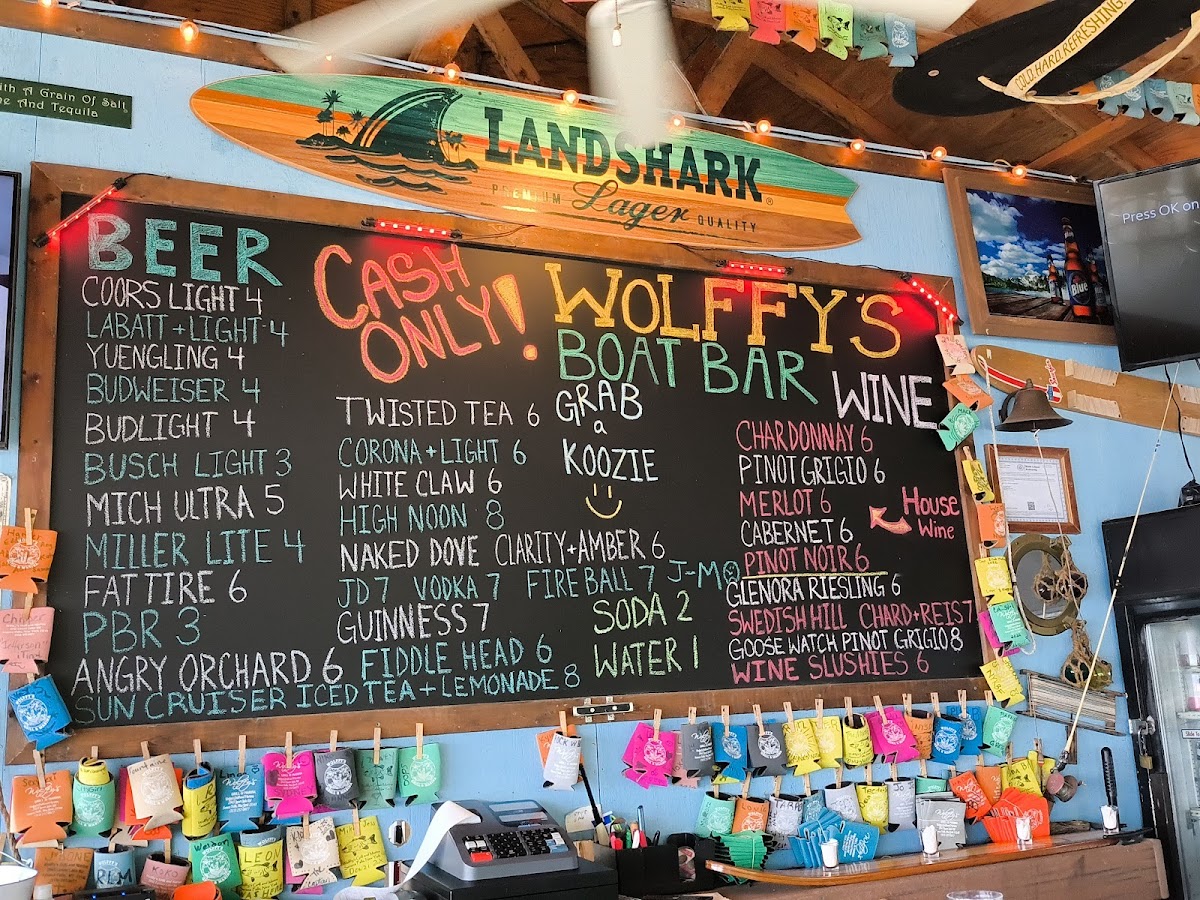 ith A Grain Of Salt
ne And Tequila
LANDSHARK
PREMIUM Lager QUALITY
COLD.HARD.REFRESHING.
Press OK on
Blue
BEER
COORS LIGHT 4
LABATT + LIGHT 4
YUENGLING 4
BUDWEISER 4
BUDLIGHT 4
BUSCH LIGHT 3
MICH ULTRA 5
MILLER LITE 4
FAT TIRE 6
PBR 3
ANGRY ORCHARD 6
SUN CRUISER ICED TEA + LEMONADE 8
CASH
ONLY!
TWISTED TEA 6
CORONA + LIGHT 6
WHITE CLAW 6
HIGH NOON 8
NAKED DOVE CLARITY + AMBER 6
JD 7 VODKA 7 FIREBALL 7 J-M 8
GUINNESS 7
FIDDLE HEAD 6
WOLFFY'S
BOAT BAR
GRAB
a
KOOZIE
SODA 2
WATER 1
WINE
CHARDONNAY 6
PINOT GRIGIO 6
MERLOT 6
CABERNET 6
PINOT NOIR 6
House
Wine
GLENORA RIESLING 6
SWEDISH HILL CHARD + REIS 7
GOOSE WATCH PINOT GRIGIO 8
WINE SLUSHIES 6
LEON